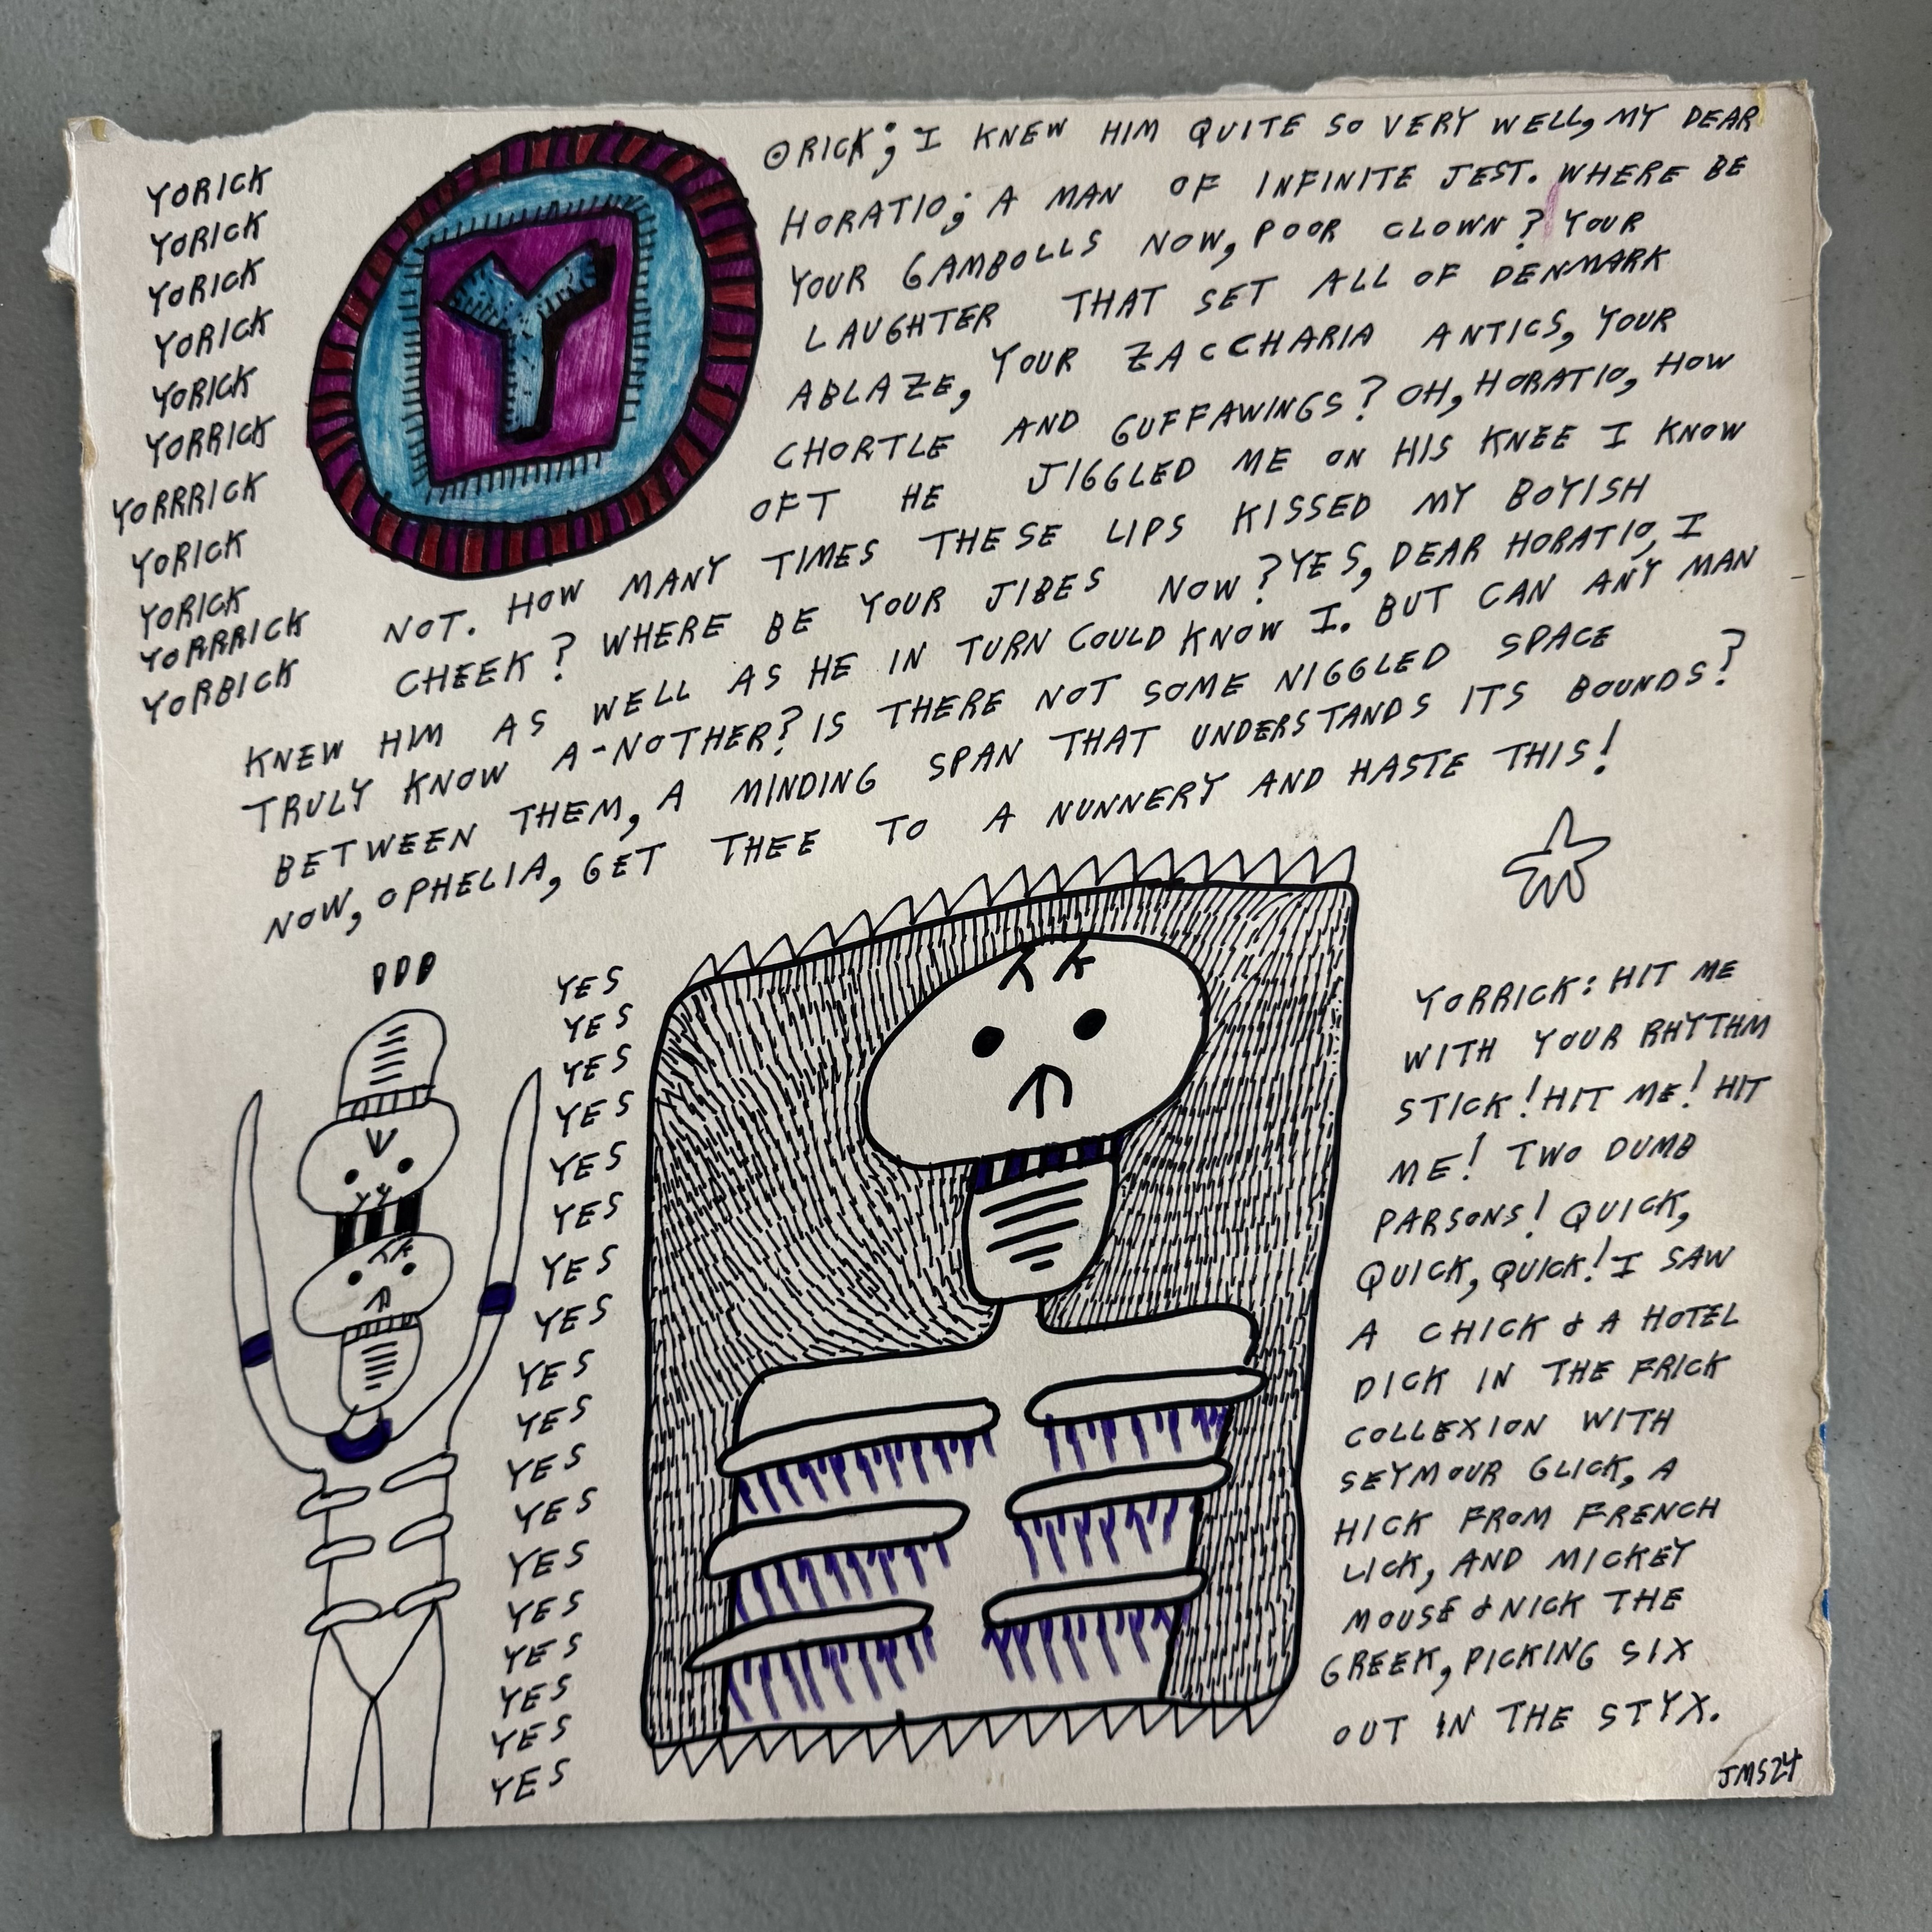 YORICK
YORICK
YORICK
YORICK
YORICK
YORRICK
YORRRICK
YORICK
YORICK
YORRRICK
YORBICK
Y
ORICK; I KNEW HIM QUITE SO VERY WELL, MY DEAR
HORATIO; A MAN OF INFINITE JEST. WHERE BE
YOUR GAMBOLLS NOW, POOR CLOWN? YOUR
LAUGHTER THAT SET ALL OF DENMARK
ABLAZE, YOUR ZACCHARIA ANTICS, YOUR
CHORTLE AND GUFFAWINGS? OH, HORATIO, HOW
OFT HE JIGGLED ME ON HIS KNEE I KNOW
NOT. HOW MANY TIMES THESE LIPS KISSED MY BOYISH
CHEEK? WHERE BE YOUR JIBES NOW? YES, DEAR HORATIO, I
KNEW HIM AS WELL AS HE IN TURN COULD KNOW I. BUT CAN ANY MAN
TRULY KNOW A-NOTHER? IS THERE NOT SOME NIGGLED SPACE
BETWEEN THEM, A MINDING SPAN THAT UNDERSTANDS ITS BOUNDS?
NOW, OPHELIA, GET THEE TO A NUNNERY AND HASTE THIS!
YES
YES
YES
YES
YES
YES
YES
YES
YES
YES
YES
YES
YES
YES
YES
YES
YES
YES
YORRICK: HIT ME
WITH YOUR RHYTHM
STICK! HIT ME! HIT
ME! TWO DUMB
PARSONS! QUICK,
QUICK, QUICK! I SAW
A CHICK & A HOTEL
DICK IN THE FRICK
COLLEXION WITH
SEYMOUR GLICK, A
HICK FROM FRENCH
LICK, AND MICKEY
MOUSE & NICK THE
GREEK, PICKING SIX
OUT IN THE STYX.
JMS24